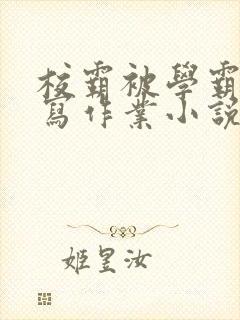 校霸被學霸
寫作業小說
姬昱汝